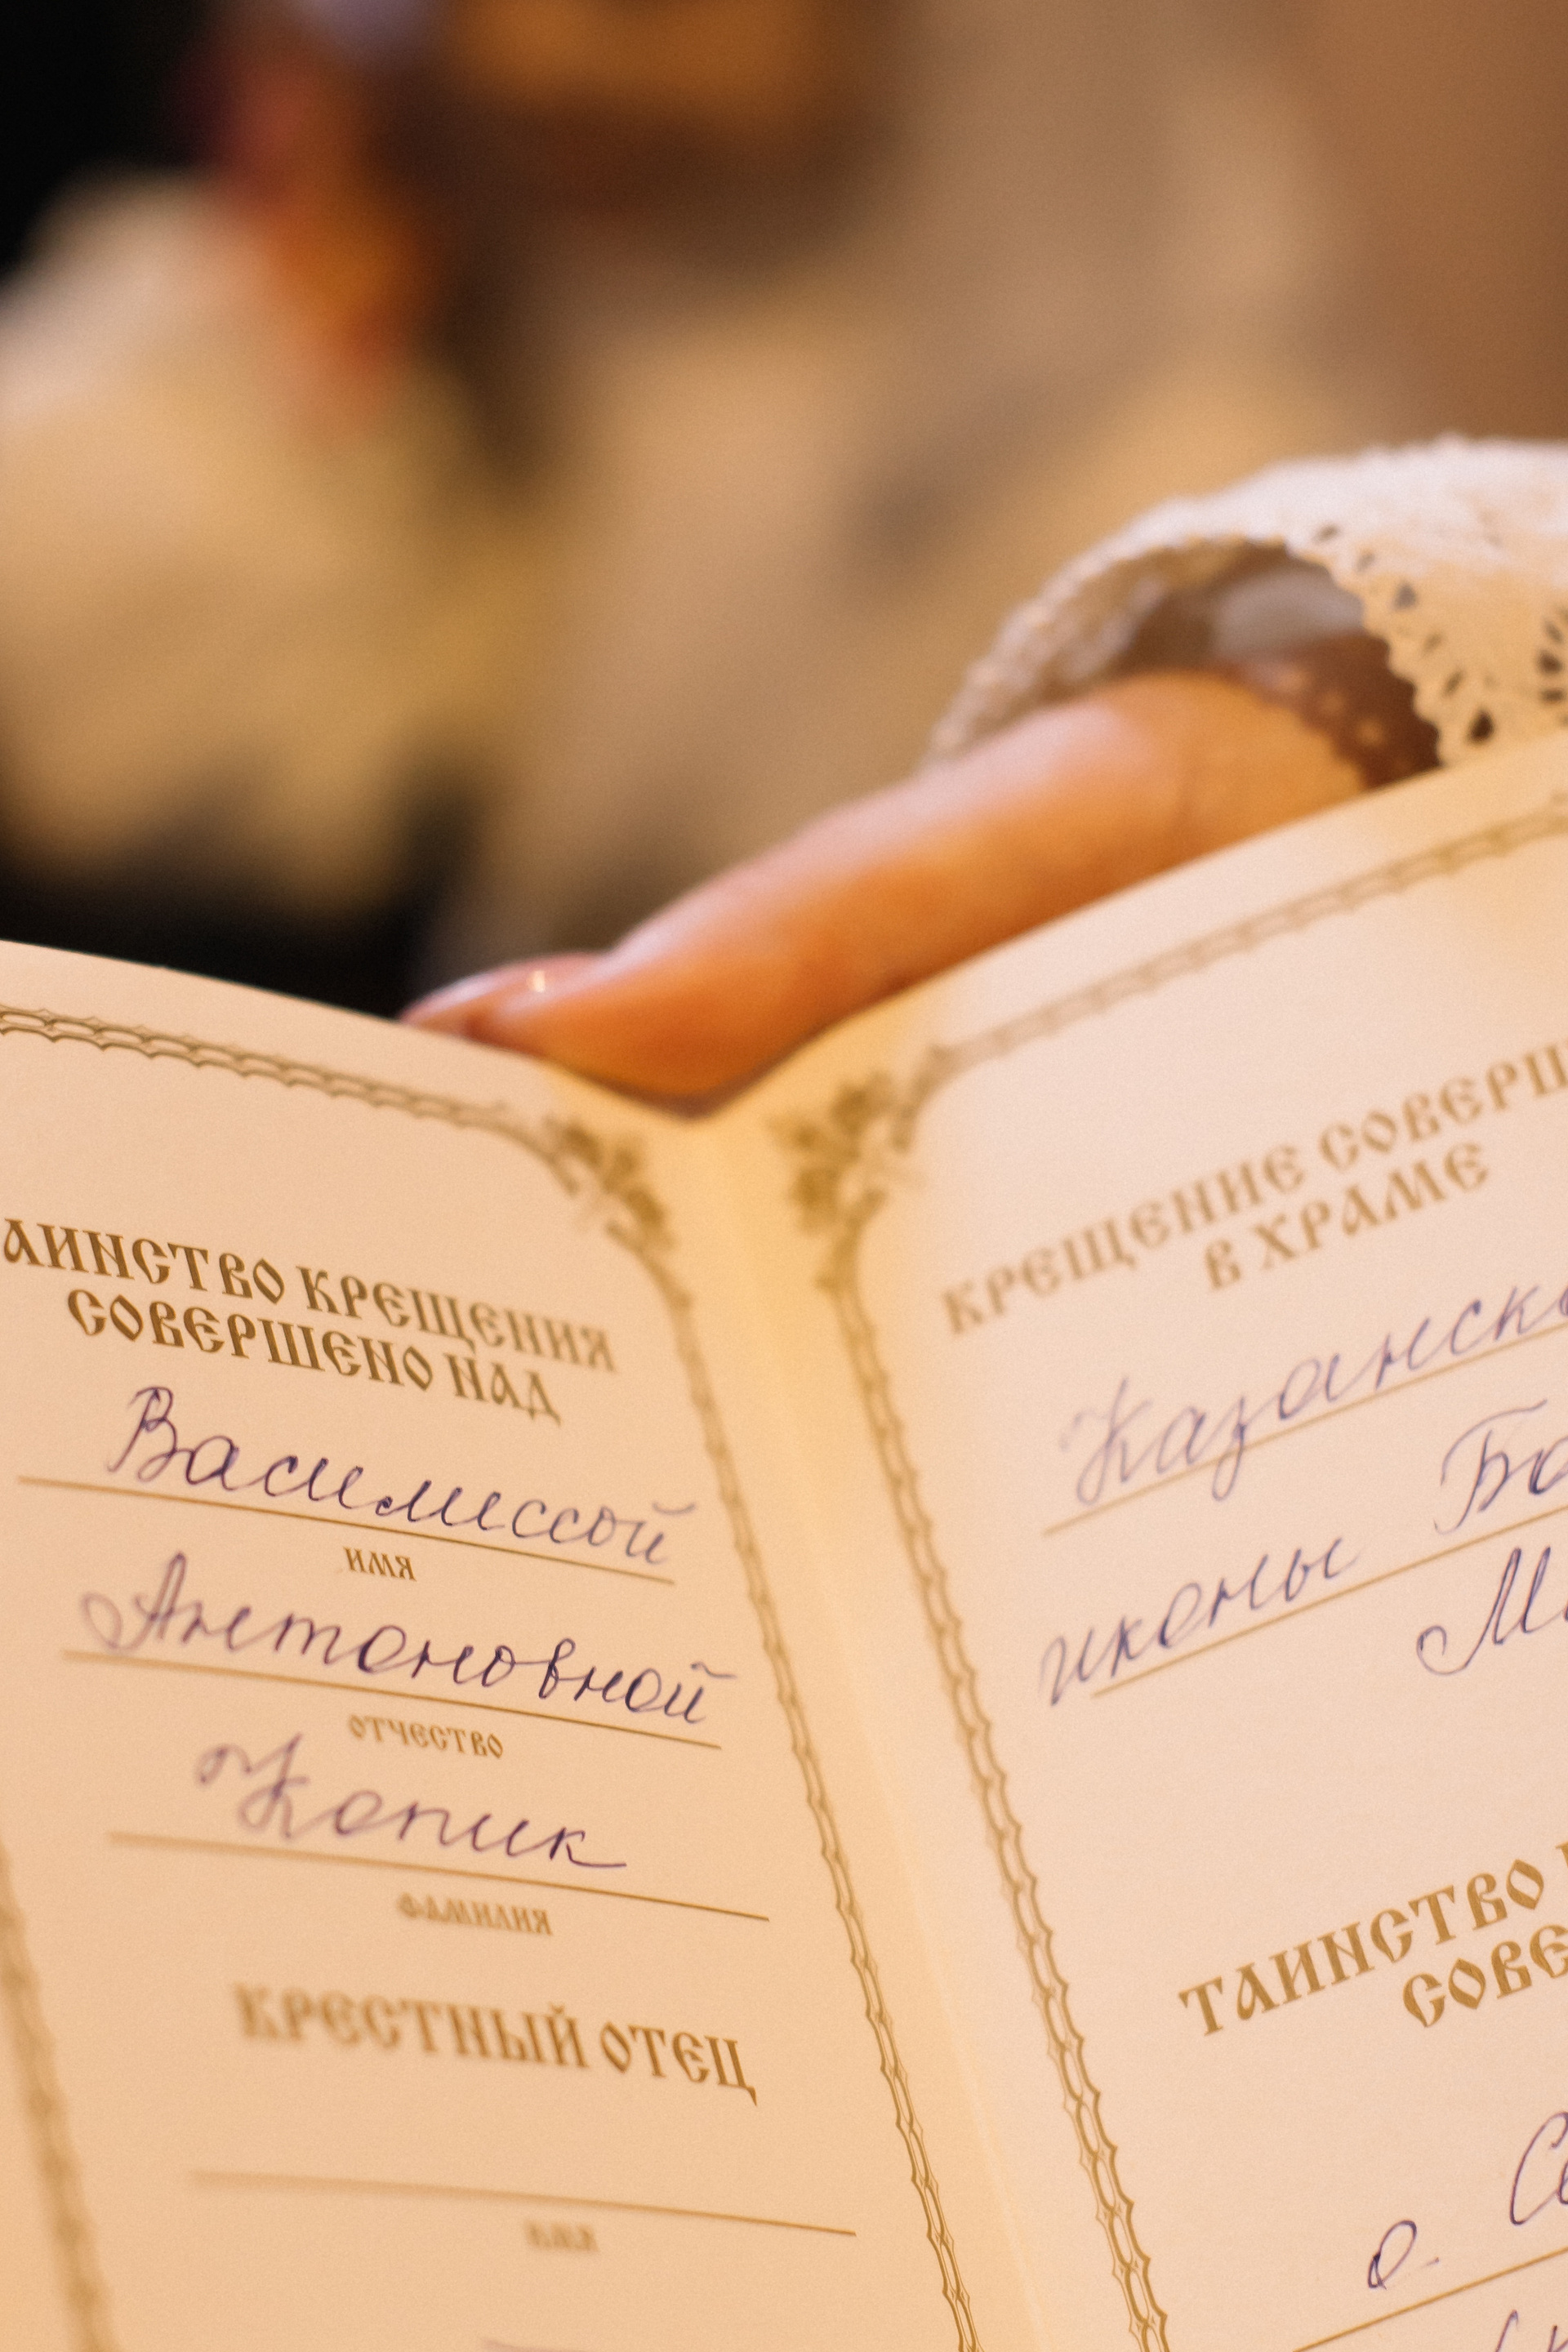 АИНСТВО КРЕЩЕНИЯ
СОВЕРШЕНО НАД
Василиссой
ИМЯ
Антоновной
ОТЧЕСТВО
Копик
ФАМИЛИЯ
КРЕСТНЫЙ ОТЕЦ
ИМЯ
КРЕЩЕНИЕ СОВЕРШ
В ХРАМЕ
Казанск
иконы Бо
М
ТАИНСТВО
СОВЕ
о. Се